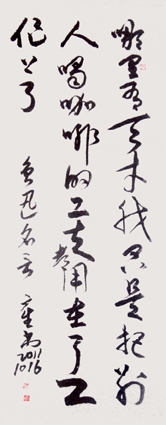 哪里有天才我只是把别
人喝咖啡的工夫都用在了工
作上了
鲁迅名言
2011
1016